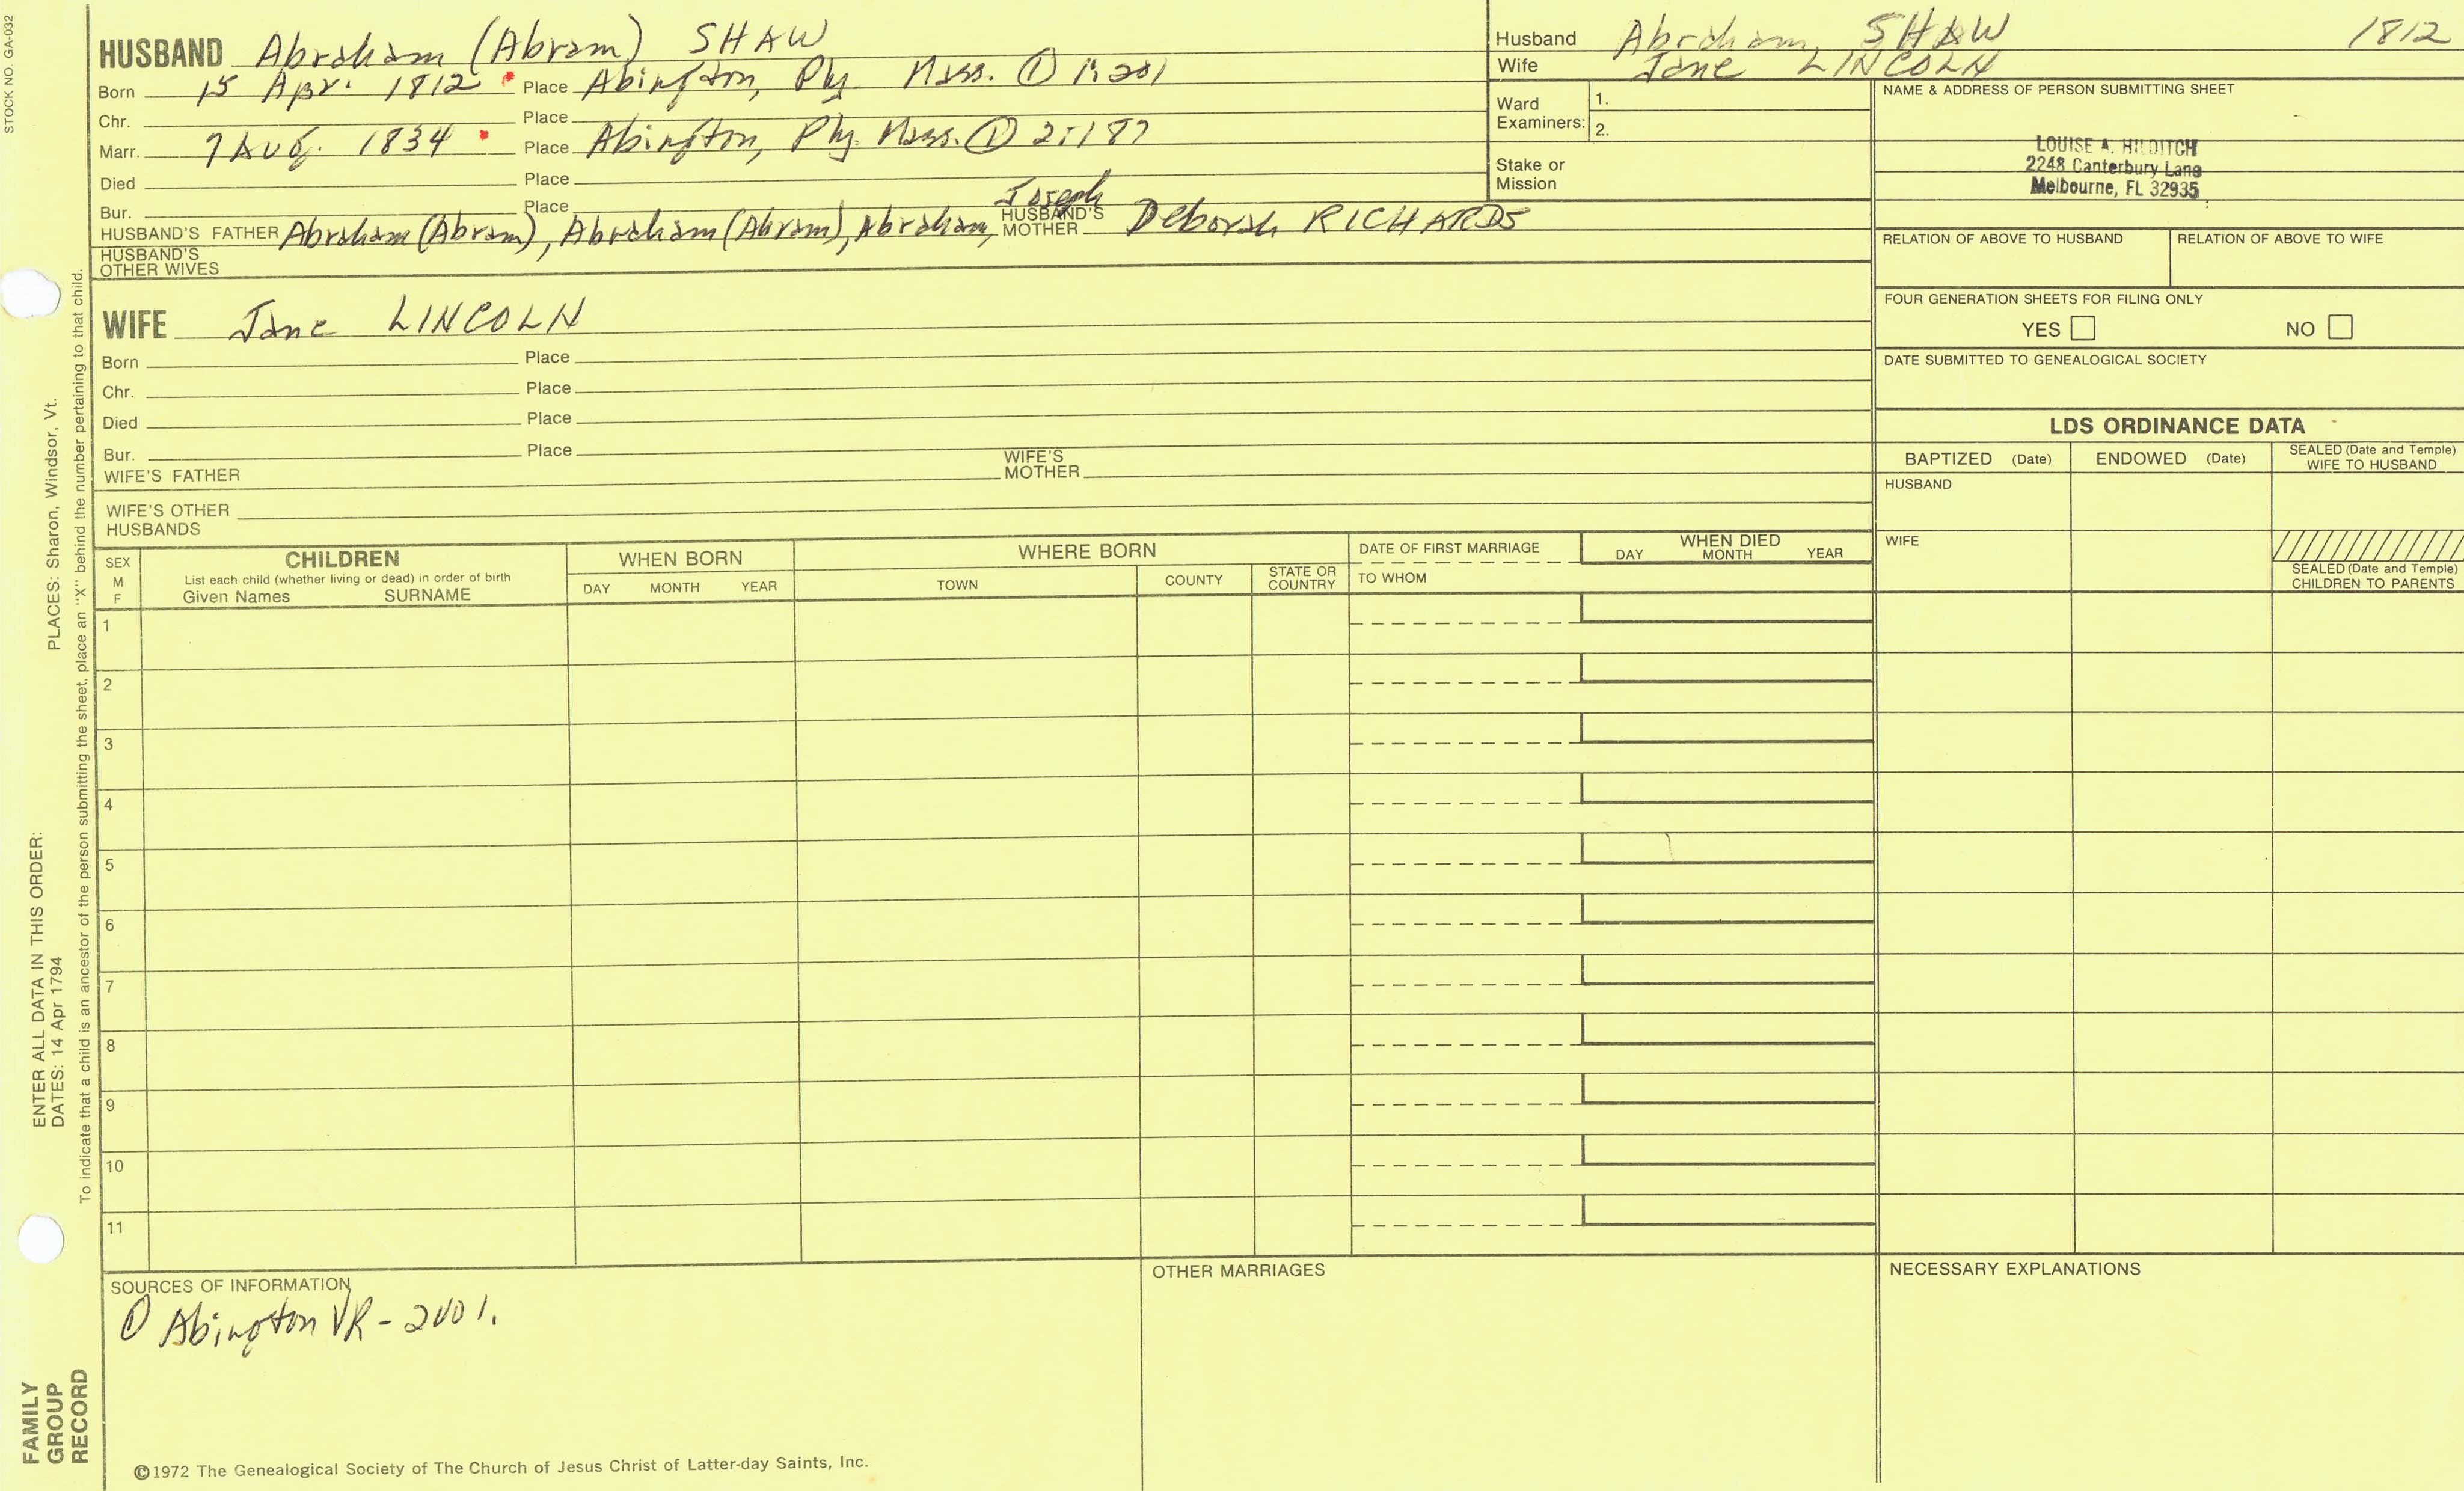 STOCK NO. GA-032
HUSBAND Abraham (Abram) SHAW
Born 15 Apr. 1812 Place Abington, Ply. Mass. ① 1:201
Chr. Place
Marr. 7 Aug. 1834 Place Abington, Ply. Mass. ① 2:187
Died Place
Bur. Place
HUSBAND'S FATHER Abraham (Abram), Abraham (Abram), Abraham, Joseph HUSBAND'S MOTHER Deborah RICHARDS
HUSBAND'S OTHER WIVES
WIFE Jane LINCOLN
Born Place
Chr. Place
Died Place
Bur. Place
WIFE'S FATHER WIFE'S MOTHER
WIFE'S OTHER HUSBANDS
Husband Abraham, SHAW 1812
Wife Jane LINCOLN
Ward Examiners: 1.
2.
Stake or Mission
NAME & ADDRESS OF PERSON SUBMITTING SHEET
LOUISE A. HILDITCH
2248 Canterbury Lane
Melbourne, FL 32935
RELATION OF ABOVE TO HUSBAND RELATION OF ABOVE TO WIFE
FOUR GENERATION SHEETS FOR FILING ONLY
YES NO
DATE SUBMITTED TO GENEALOGICAL SOCIETY
LDS ORDINANCE DATA
BAPTIZED (Date) ENDOWED (Date) SEALED (Date and Temple) WIFE TO HUSBAND
HUSBAND
WIFE
SEALED (Date and Temple) CHILDREN TO PARENTS
SEX M F
CHILDREN
List each child (whether living or dead) in order of birth
Given Names SURNAME
WHEN BORN
DAY MONTH YEAR
WHERE BORN
TOWN COUNTY STATE OR COUNTRY
DATE OF FIRST MARRIAGE
TO WHOM
WHEN DIED
DAY MONTH YEAR
1
2
3
4
5
6
7
8
9
10
11
SOURCES OF INFORMATION
① Abington VR - 2 vol.
OTHER MARRIAGES
NECESSARY EXPLANATIONS
©1972 The Genealogical Society of The Church of Jesus Christ of Latter-day Saints, Inc.
FAMILY GROUP RECORD
ENTER ALL DATA IN THIS ORDER:
DATES: 14 Apr 1794 PLACES: Sharon, Windsor, Vt.
To indicate that a child is an ancestor of the person submitting the sheet, place an "X" behind the number pertaining to that child.